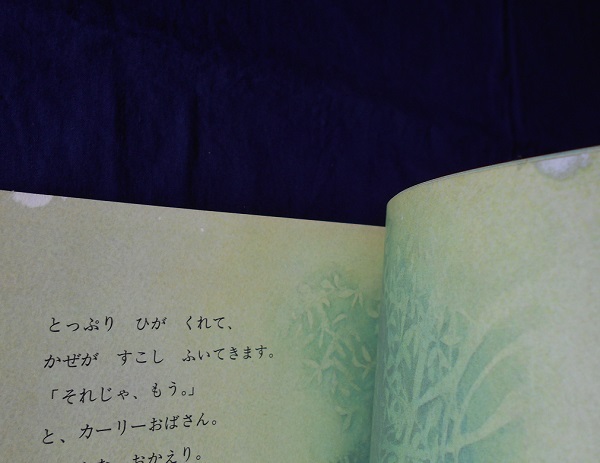 とっぷり　ひが　くれて、
かぜが　すこし　ふいてきます。
「それじゃ、もう。」
と、カーリーおばさん。
おかえり。